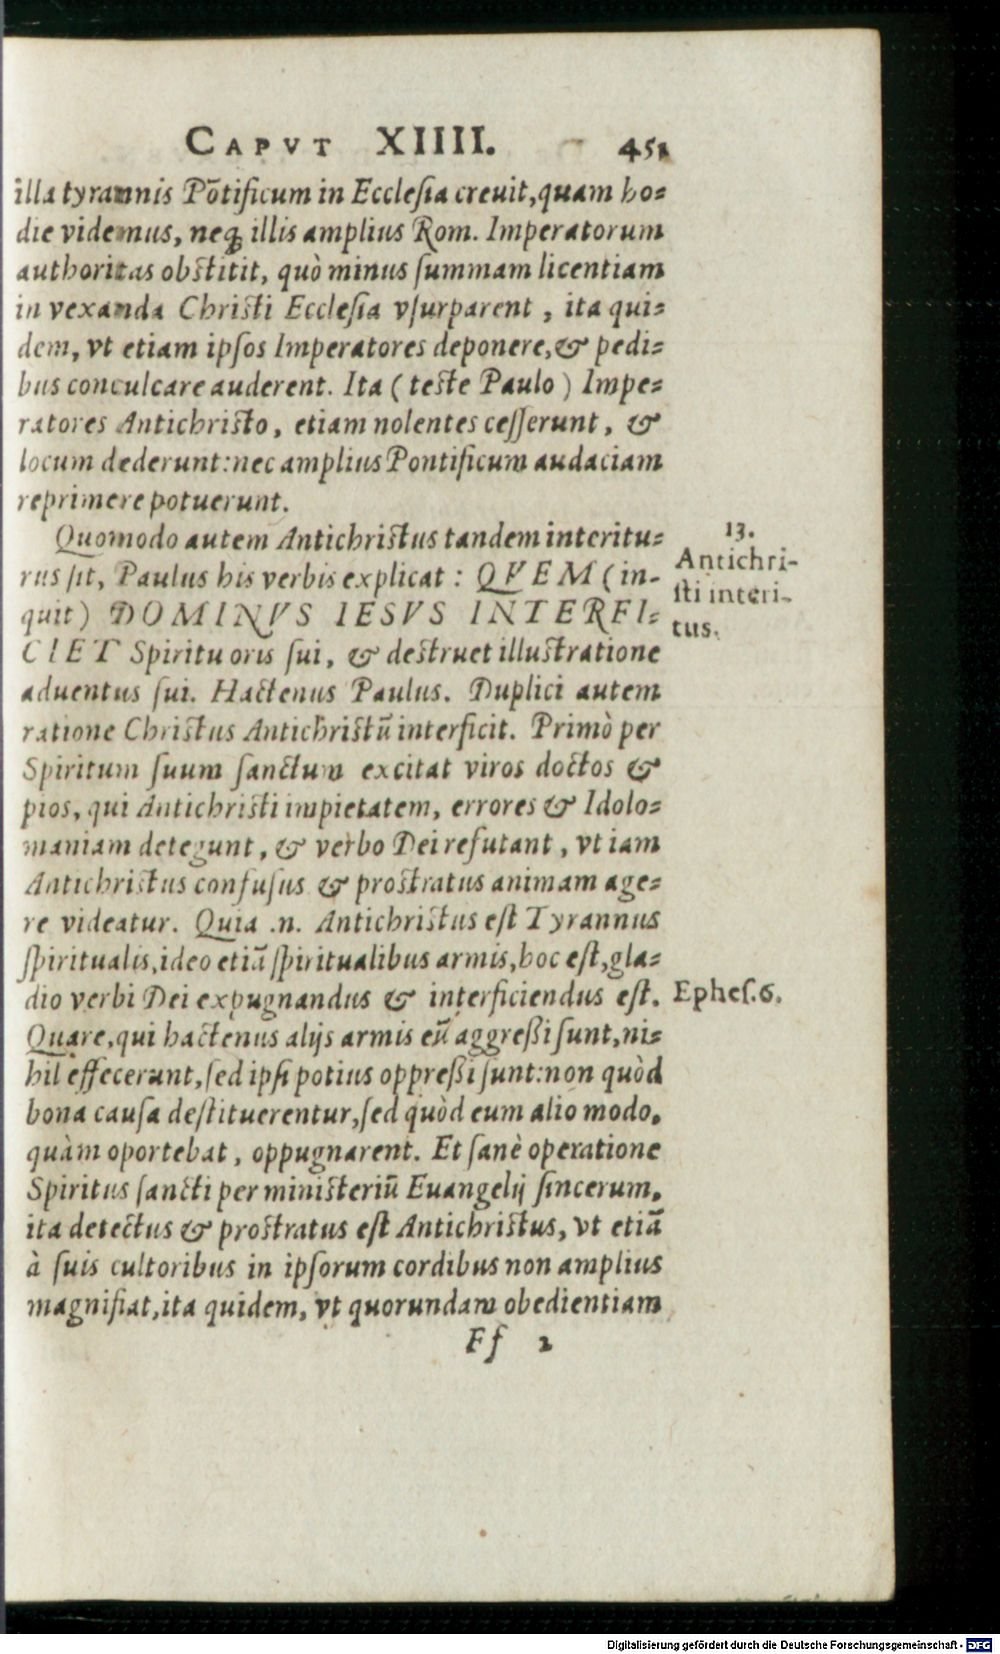 CAPVT XIIIII. 451
illa tyrannis Põtificum in Ecclesia creuit, quam ho=
die videmus, neq; illis amplius Rom. Imperatorum
authoritas obstitit, quò minus summam licentiam
in vexanda Christi Ecclesia vsurparent, ita qui=
dem, vt etiam ipsos Imperatores deponere, & pedi=
bus conculcare auderent. Ita (teste Paulo) Impe=
ratores Antichristo, etiam nolentes cesserunt, &
locum dederunt: nec amplius Pontificum audaciam
reprimere potuerunt.
Quomodo autem Antichristus tandem interitu=
rus sit, Paulus his verbis explicat: QVEM (in-
quit) DOMINVS IESVS INTERFI=
CIET Spiritu oris sui, & destruet illustratione
aduentus sui. Hactenus Paulus. Duplici autem
ratione Christus Antichristũ interficit. Primò per
Spiritum suum sanctum excitat viros doctos &
pios, qui Antichristi impietatem, errores & Idolo=
maniam detegunt, & verbo Dei refutant, vt iam
Antichristus confusus & prostratus animam age=
re videatur. Quia .n. Antichristus est Tyrannus
spiritualis, ideo etiã spiritualibus armis, hoc est, gla=
dio verbi Dei expugnandus & interficiendus est.
Quare, qui hactenus alijs armis eũ aggreßi sunt, ni=
hil effecerunt, sed ipsi potius oppreßi sunt: non quòd
bona causa destituerentur, sed quòd eum alio modo,
quàm oportebat, oppugnarent. Et sanè operatione
Spiritus sancti per ministeriũ Euangelij sincerum,
ita detectus & prostratus est Antichristus, vt etiã
à suis cultoribus in ipsorum cordibus non amplius
magnifiat, ita quidem, vt quorundam obedientiam
Ff 2
13.
Antichri-
sti interi-
tus.
Ephes. 6.
Digitalisierung gefördert durch die Deutsche Forschungsgemeinschaft - DFG